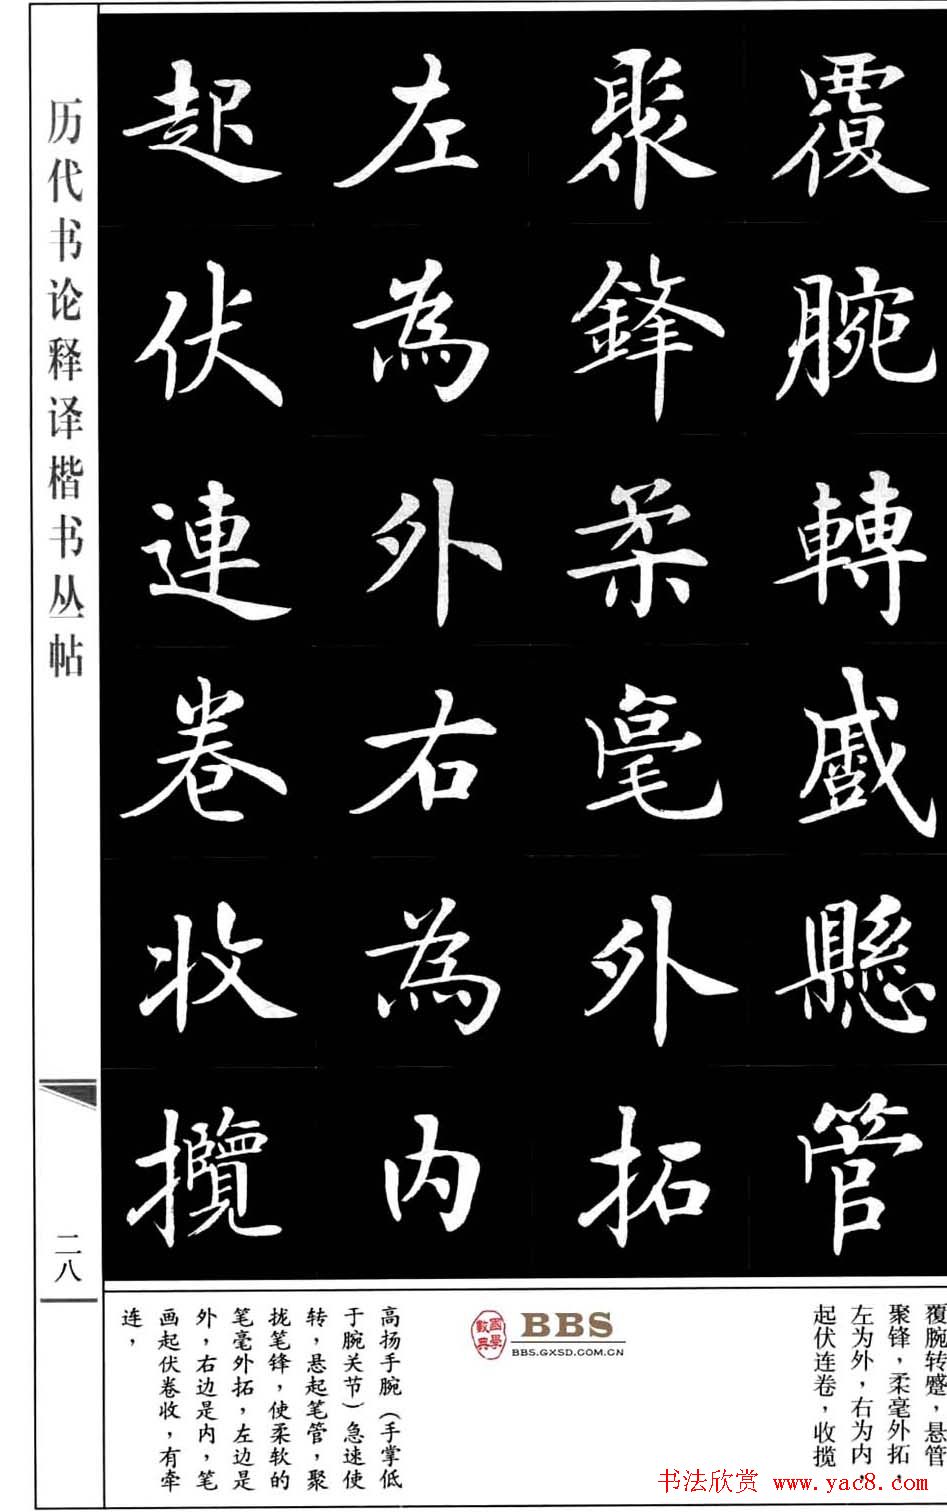 覆腕轉蹙懸管
聚鋒柔毫外拓
左為外右為内
起伏連卷收攬
历代书论释译楷书丛帖
二八
覆腕转蹙，悬管
聚锋，柔毫外拓，
左为外，右为内，
起伏连卷，收揽
國學數典
BBS
BBS.GXSD.COM.CN
高扬手腕（手掌低
于腕关节）急速使
转，悬起笔管，聚
拢笔锋，使柔软的
笔毫外拓，左边是
外，右边是内，笔
画起伏卷收，有牵
连，
书法欣赏 www.yac8.com